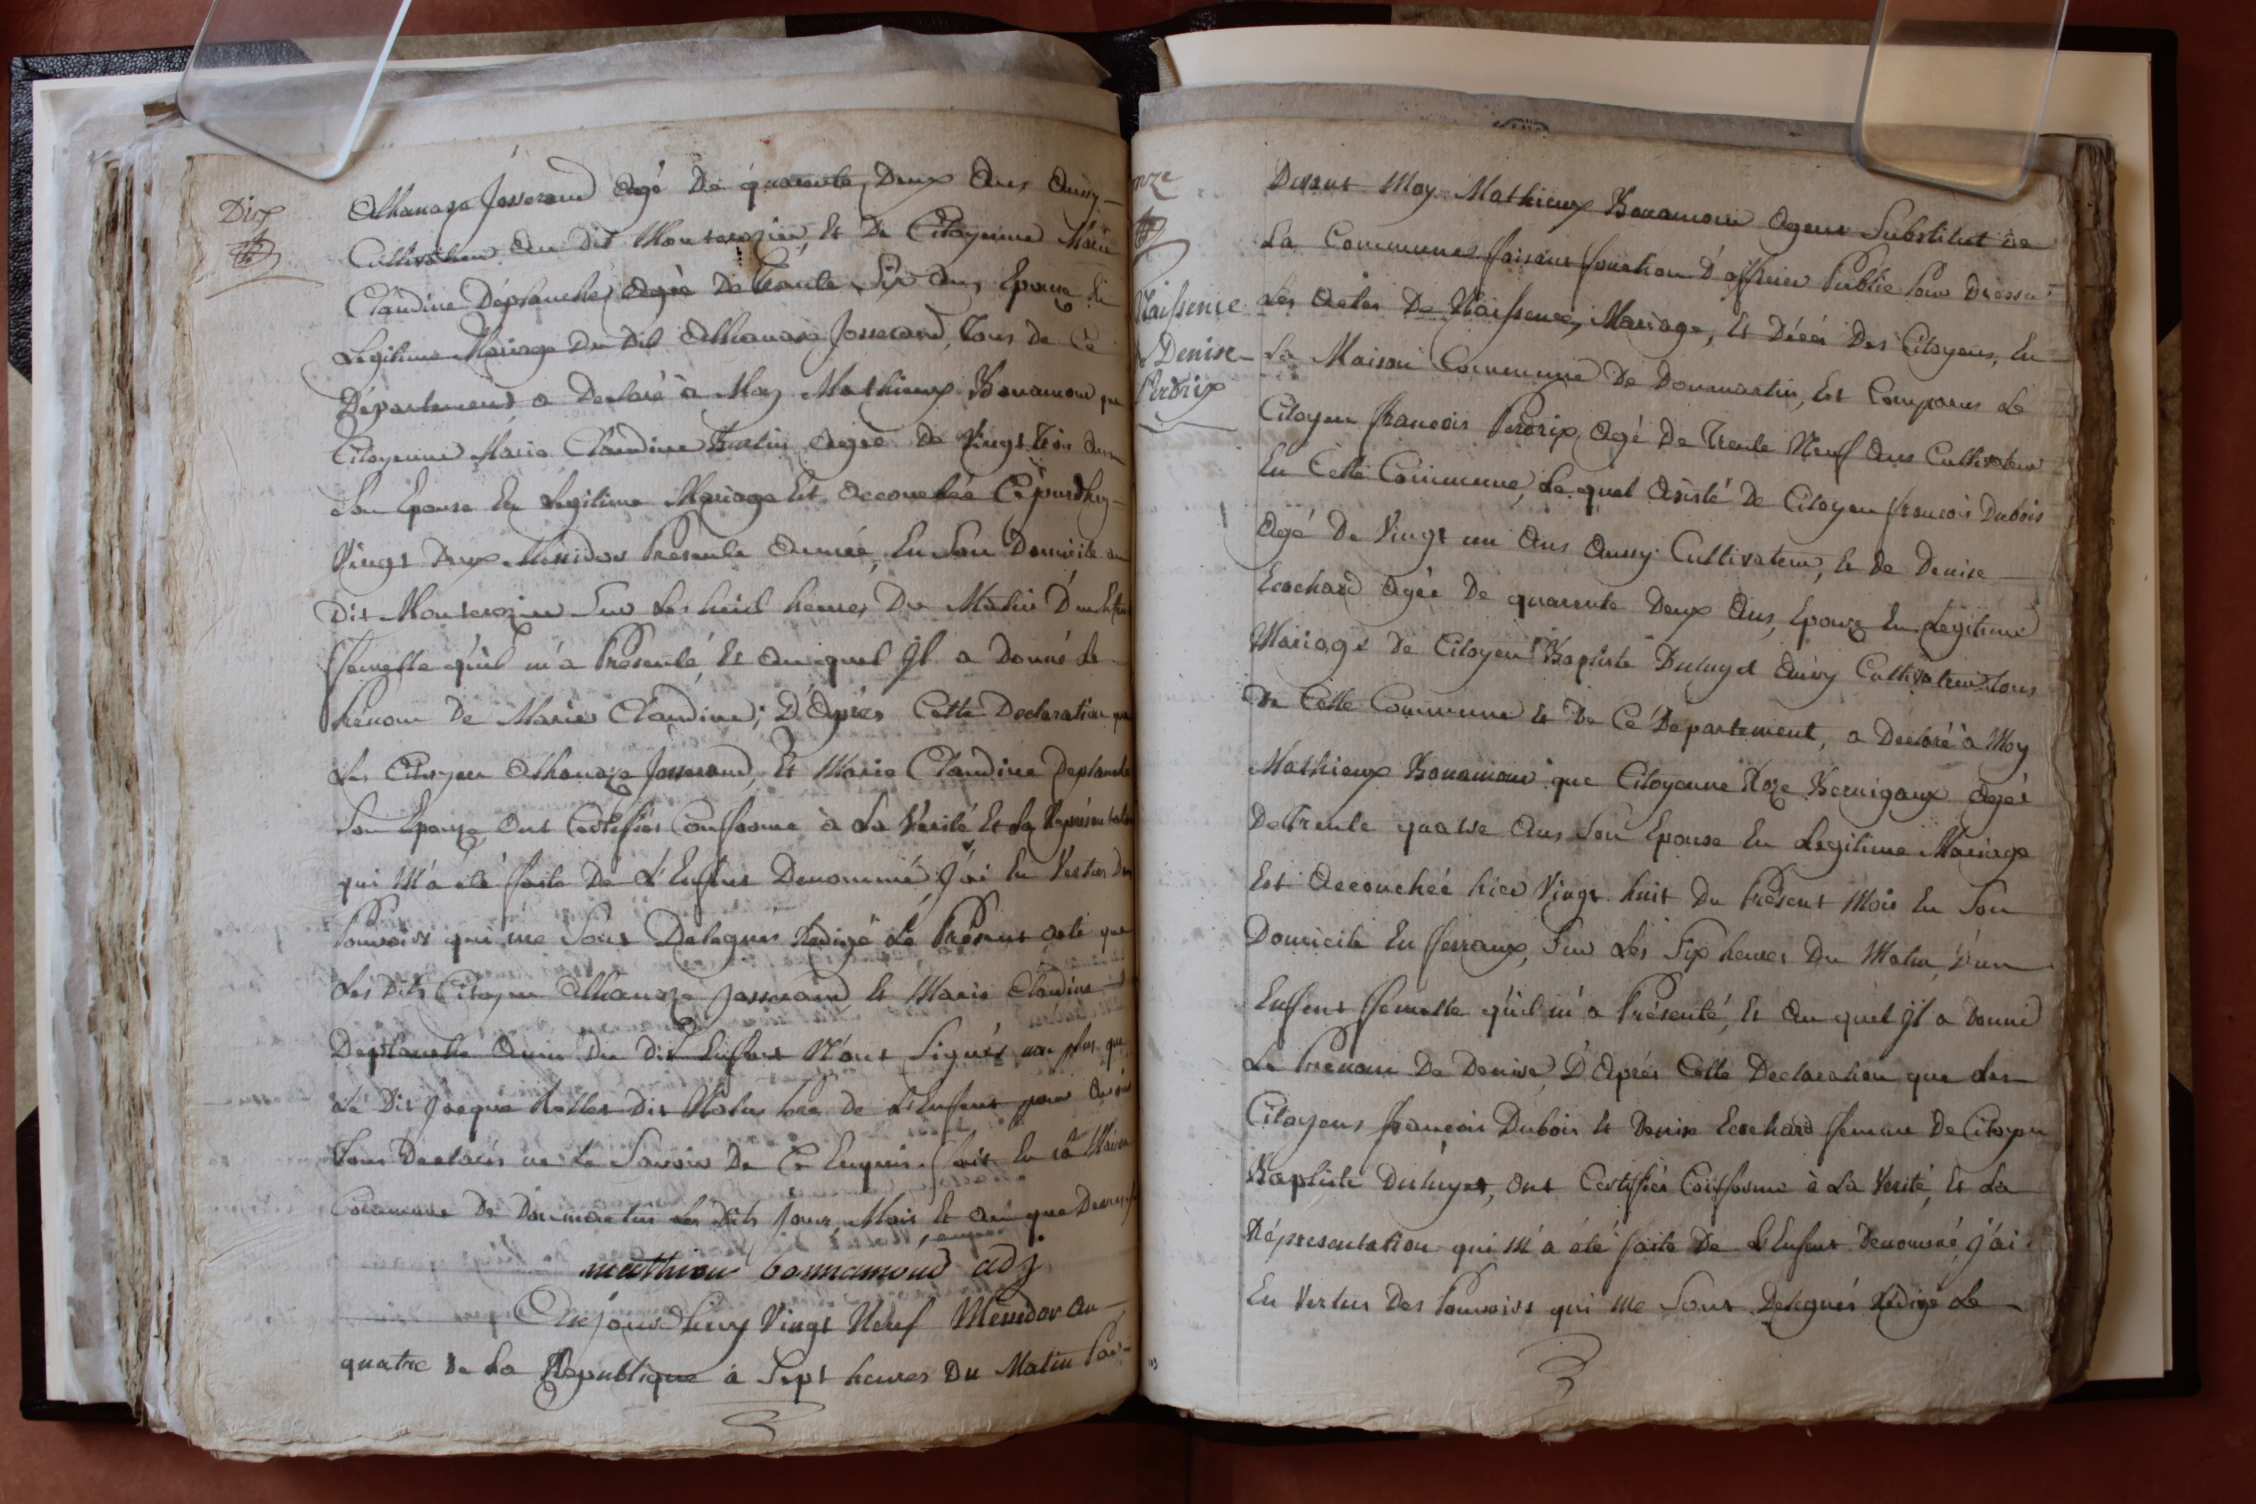 Dix
Athanaze Josserand Agé De quarente Deux Ans Aussy
Cultivateur Au Dit Monterozier, Et De Citoyenne Marie
Claudine Déplanche, Agée De trente Six Ans, Epouze En
Legitime Mariage Du Dit Athanaze Josserand, Tous de Ce
Département a Declaré à Moy Mathieux Bonamour que
Citoyenne Marie Claudine Agée De Vingt trois Ans
Son Epouse En Legitime Mariage Est Accouchée Cejourdhuy
Vingt Deux Messidor Présente Année, En Son Domicile au
Dit Monterozier Sur Les huit heures Du Matin D'un Enfant
ffemelle qu'il m'a Présenté, Et Au quel Jl a Donné Le
Prénom De Marie Claudine; D'Après Cette Declaration que
Les Citoyen Athanaze Josserand, Et Marie Claudine Deplanche
Son Epouze, Ont Certiffiés Conforme à La Verité Et La Représentation
qui M'a été ffaite De L'Enfant Denommé, J'ai En Vertus Des
Pouvoirs qui me Sont Delegués Redigé Le Présent Acte que
Les Dits Citoyen Athanaze Josserand Et Marie Claudine
Deplanche Du Dit Enfant N'ont Signés non plus que
Le Dit Jacque Dit Pere de L'Enfant pour Avoir
Tous Declarés ne Le Savoir De Ce Enquis. ffait En La Maison
Commune De Dommartin Les Dits Jour, Mois Et An que Dessus
mathieu bonnamour adj
Aujourdhuy Vingt Neuf Messidor An
quatre De La Republique à Sept heures Du Matin Par
onze
Naissence
De Denise
Perdrix
Devant Moy Mathieux Bonamour Agent Substitut De
La Commune ffaisant fonction D'officier Public Pour Dresser
Les Actes De Naissence, Mariage, Et Décés Des Citoyens, En
La Maison Commune De Dommartin, Est Comparus Le
Citoyen francois Perdrix Agé De Trente Neuf Ans Cultivateur
En Cette Commune, Le quel Assisté De Citoyen francois Dubois
Agé De Vingt un Ans Aussy Cultivateur, Et De Denise
Ecochard Agée De quarente Deux Ans, Epouze En Legitime
Mariage De Citoyen Baptiste Duluyet Aussy Cultivateur Tous
De Cette Commune Et De Ce Département, a Declaré à Moy
Mathieux Bonamour que Citoyenne Roze Bernigaux Agée
De Trente quatre Ans Son Epouse En Legitime Mariage
Est Accouchée hier Vingt huit Du Présent Mois En Son
Domicile En fferraux, Sur Les Six heures Du Matin, D'un
Enffent ffemelle qu'il m'a Présenté, Et Au quel Jl a Donné
Le Prénom De Denise, D'Après Cette Declaration que Les
Citoyens francois Dubois Et Denise Ecochard ffemme De Citoyen
Baptiste Duluyet, Ont Certiffiés Conforme à La Verité, Et La
Répresentation qui M'a été ffaite De L'Enfant Denommé, J'ai
En Vertus Des Pouvoirs qui Me Sont Delegués Redigé Le